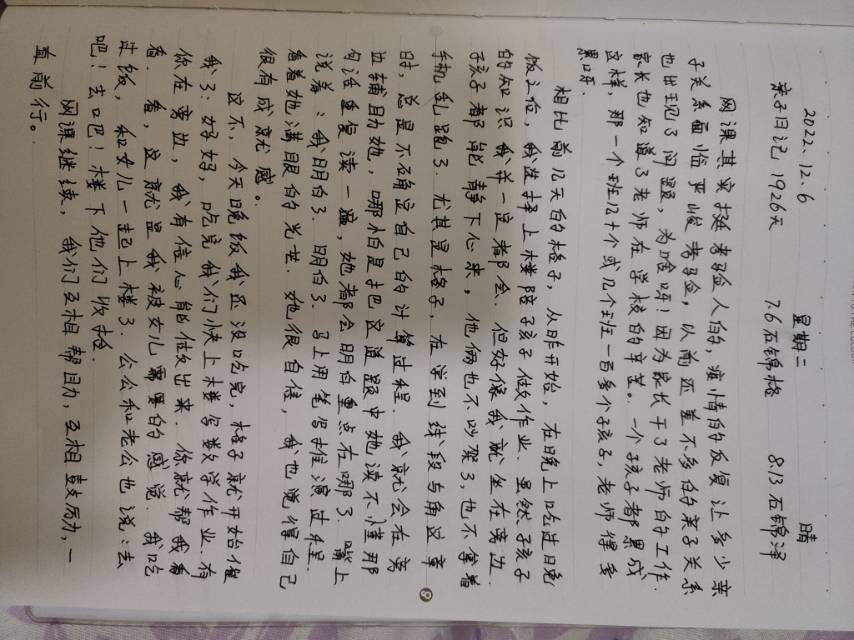 2022.12.6 星期二 晴
亲子日记 1926天 7.6石锦格 8.13石锦泽
网课其实挺考验人的，疫情的反复让多少亲
子关系面临严峻考验，以前还差不多的亲子关系
也出现了问题，为啥呀！因为家长干了老师的工作.
家长也知道了老师在学校的辛苦。一个孩子都累成
这样，那一个班几十个或几个班一百多个孩子，老师得多
累呀.
相比前几天的格子，从昨开始，在晚上吃过晚
饭之后，我选择上楼陪孩子做作业.虽然子孩子
的知识我并一定都会.但好像我就坐在旁边.
子孩子都能静下心来，他俩也不吵架了，也不拿着
手机乱跑了.尤其是格子，在学到线段与角这章
时，总是不否确定自己的计算过程.我就会在旁
边辅助她，哪怕是把这道题中她读不懂那
句话重复读一遍，她都会明白重点在哪了.嘴上
说着：我明白了.明白了.马上用笔写推演过程.
看着她满眼的光芒.她很自信，我也觉得自己
很有成就感。
这不，今天晚饭我还没吃完，格子就开始催
我了：妈妈，吃完我们快上楼写数学作业.有
你在旁边，我有信心能做出来.你就帮我看
看.看，这就是我被女儿需要的感觉.我吃
过饭，和女儿一起上楼了.公公和老公也说：去
吧！去吧！楼下他们收拾.
网课继续，我们互相帮助，互相鼓励，一
直前行。